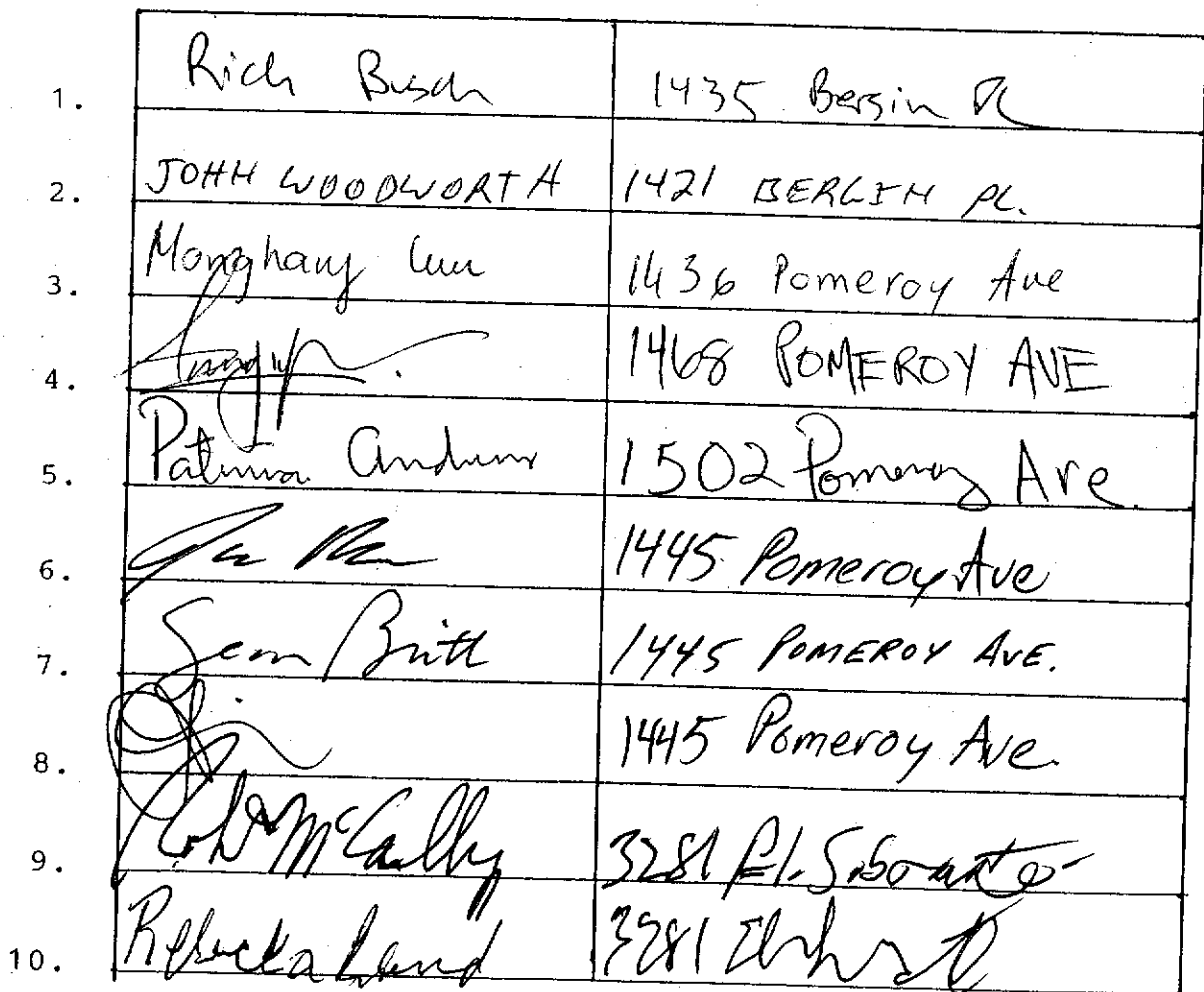 1. Rich Busch 1435 Bergin Pl
2. JOHN WOODWORTH 1421 BERGIN PL.
3. Monghang Luu 1436 Pomeroy Ave
4. 1468 POMEROY AVE
5. Patricia 1502 Pomeroy Ave.
6. 1445 Pomeroy Ave
7. Sean Britt 1445 POMEROY AVE.
8. 1445 Pomeroy Ave.
9. 3281 El
10. Rebecka Land 3281